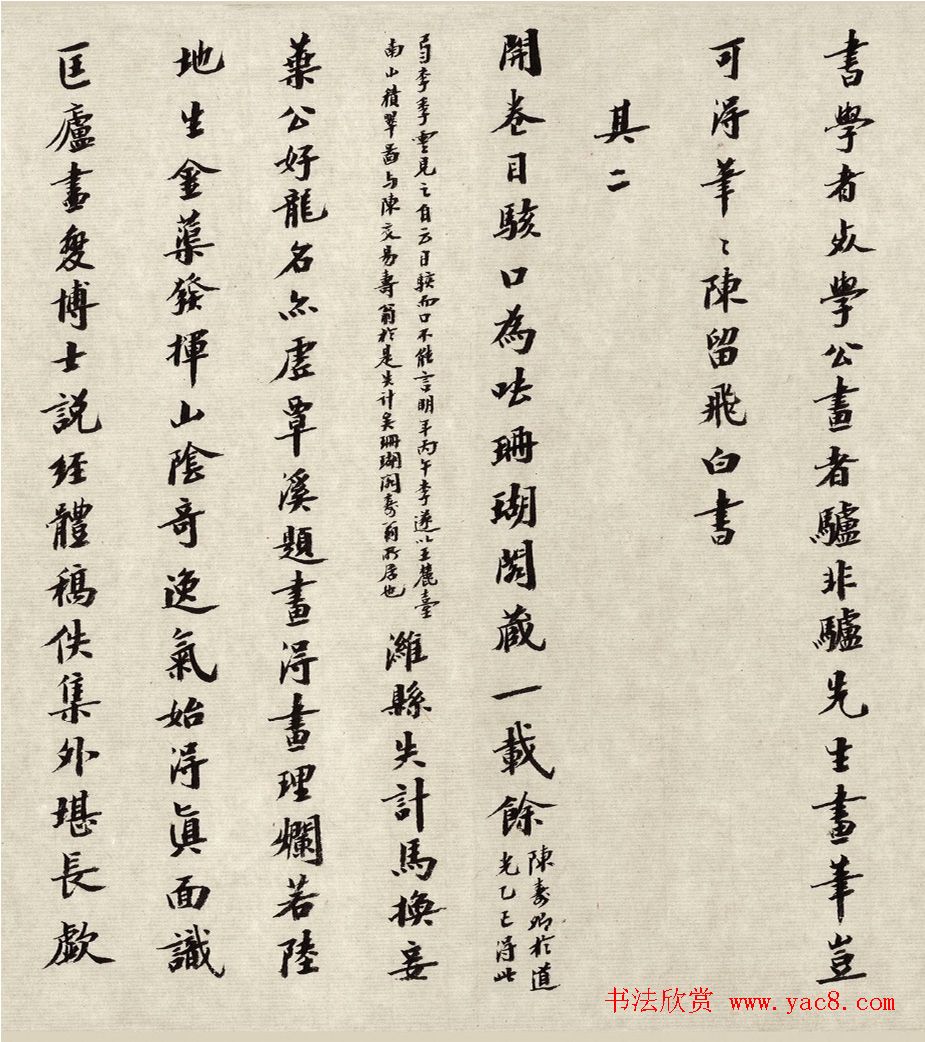 書學者學公畫者驢非驢先生畫筆豈
可得筆〻陳留飛白書
其二
開卷目駭口為呿珊瑚閣藏一載餘
陳壽卿於道
光乙巳得此
李季雲見之自云目駭而口不能言明年丙午李遂以王麓臺
南山積翠啚与陳交易壽翁於是失計矣珊瑚閣壽翁所居也
濰縣失計馬換妾
葉公好龍名亦虛覃溪題畫得畫理爛若陸
地生金蕖發揮山陰奇逸氣始得真面識
匡廬畫博士說經體稿佚集外堪長歔
书法欣赏 www.yac8.com